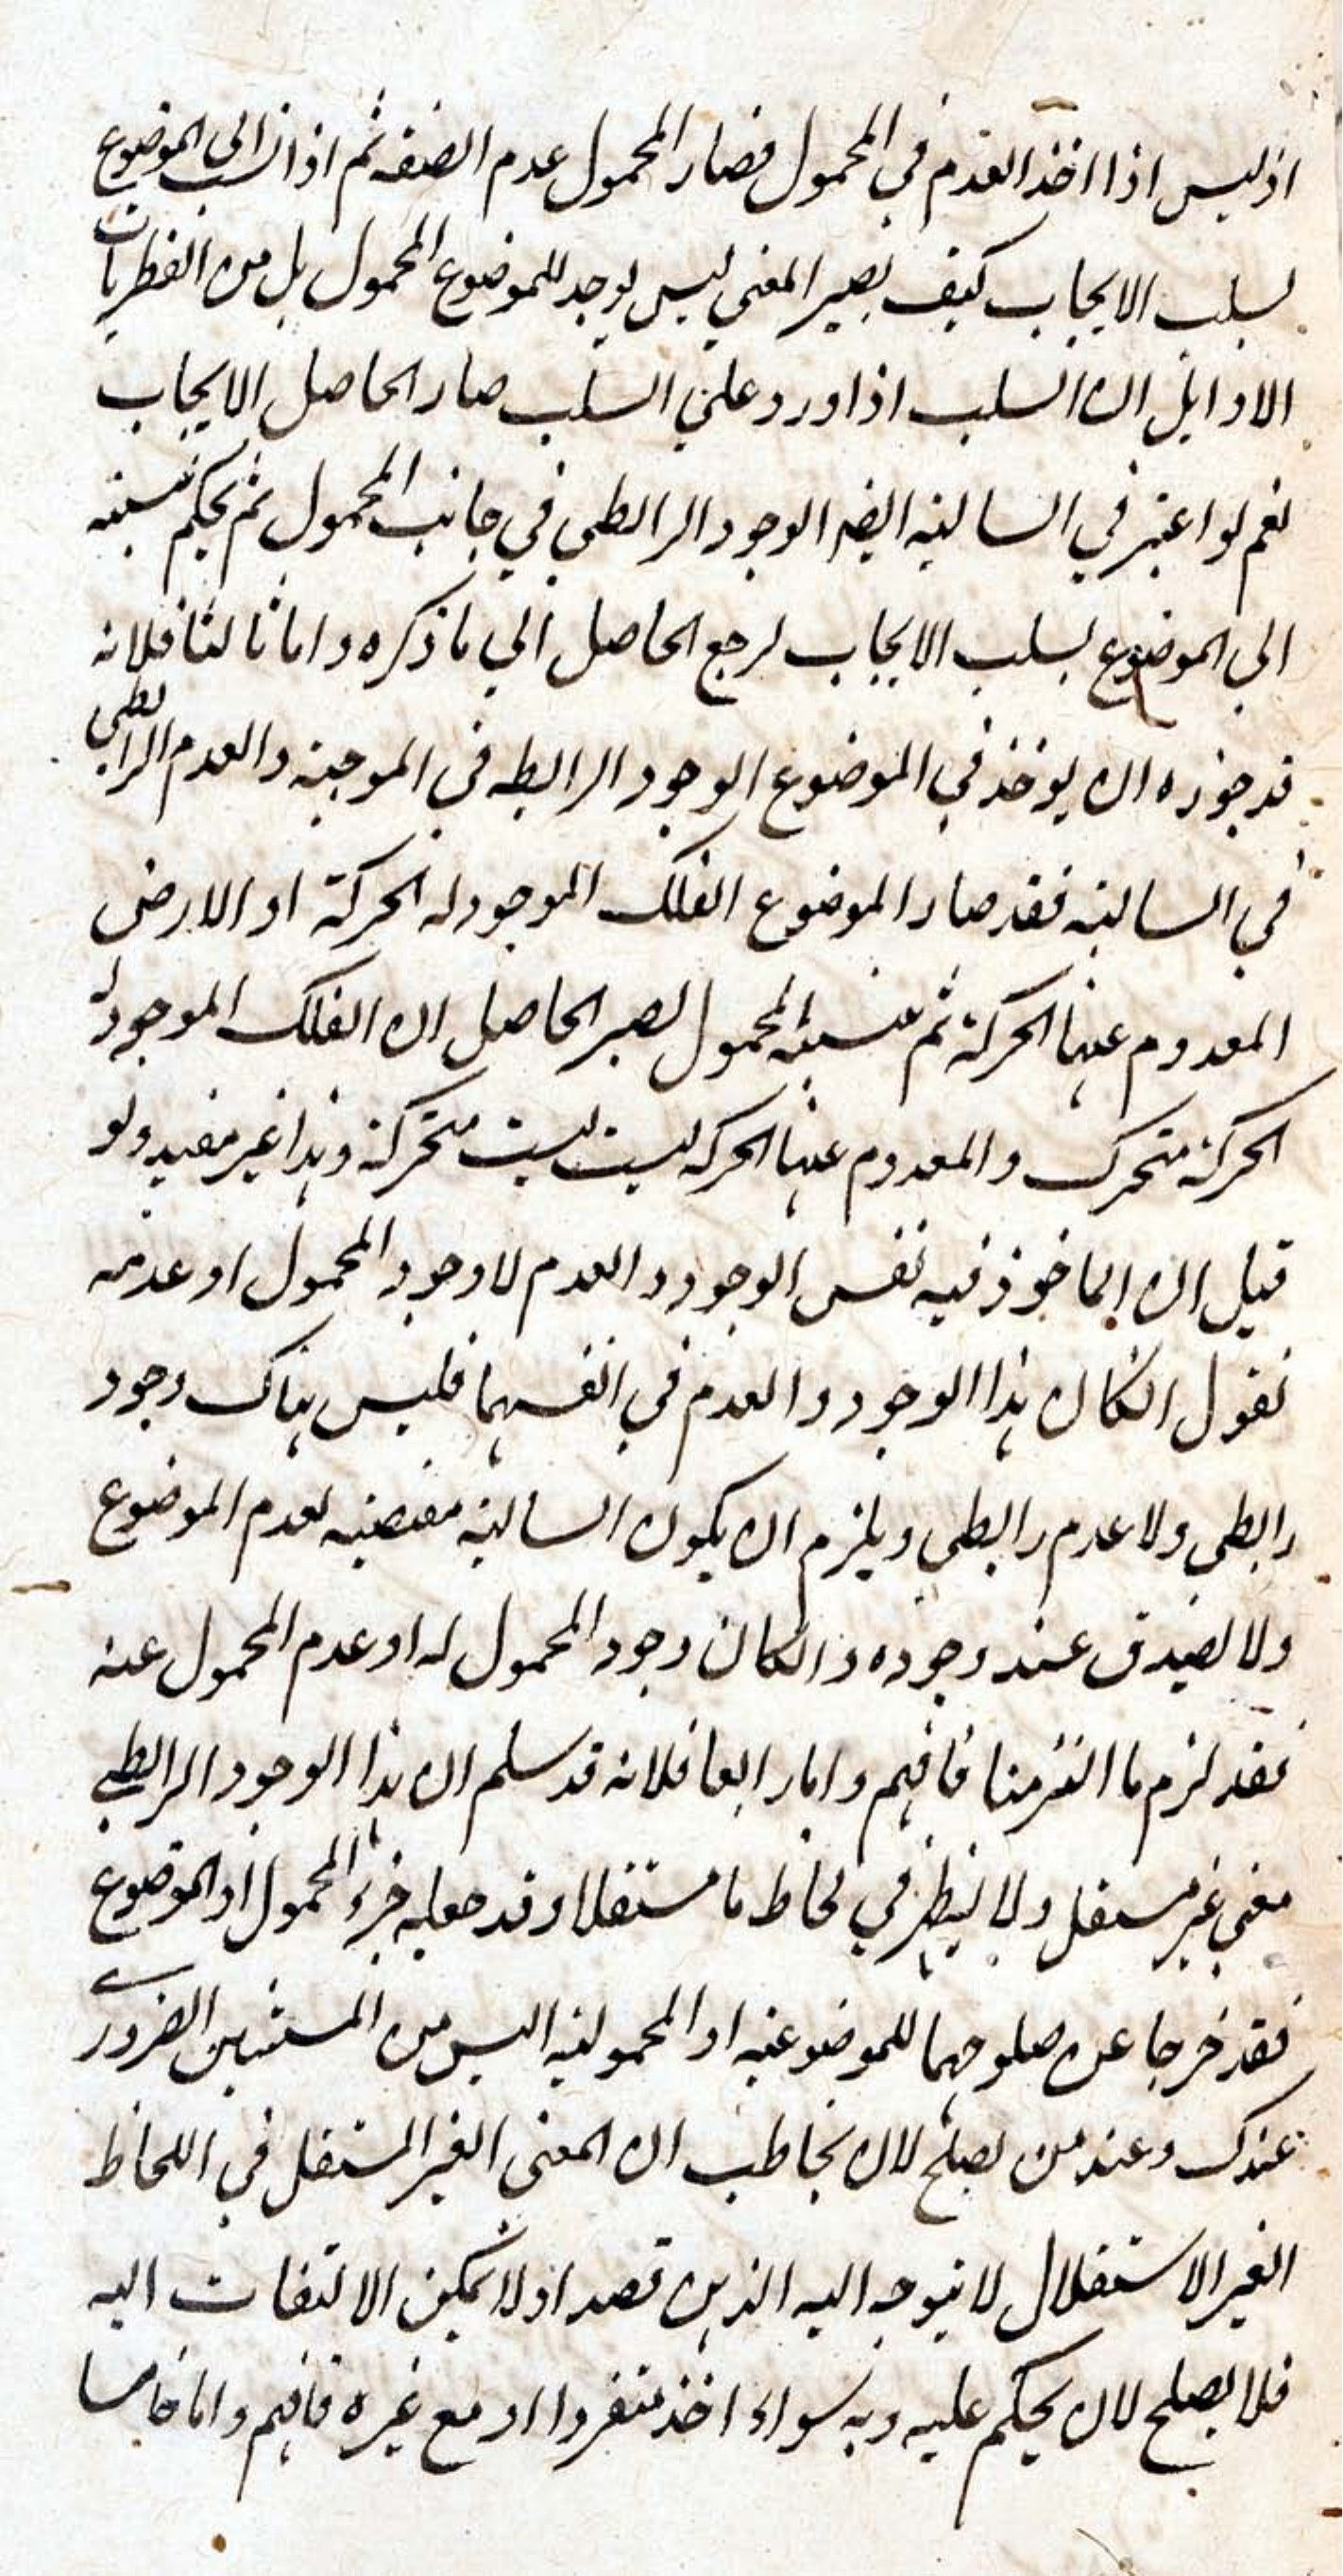 اذ ليس اذا اخذ العدم في المحمول فصار المحمول عدم الصفة ثم اذا نسب الى الموضوع
بسلب الايجاب كيف يصير المعني ليس يوجد للموضوع المحمول بل من الفطريات
الاوايل ان السلب اذا ورد علي السلب صار الحاصل الايجاب
نعم لو اعتبر في السالبة ايضا الوجود الرابطي في جانب المحمول ثم يحكم بنسبته
الي الموضوع بسلب الايجاب لرجع الحاصل الي ما ذكره و اما ثالثا فلانه
قد جوزه ان يوخذ في الموضوع الوجود الرابطه في الموجبة والعدم الرابطي
في السالبة فقد صار الموضوع الفلك الموجود له الحركة او الارض
المعدوم عنها الحركة ثم نسبة المحمول يصير الحاصل ان الفلك الموجود له
الحركة متحرك والمعدوم عنها الحركه ليست ليست متحركة وهذا غير مفيد ولو
قيل ان الماخوذ فيه نفس الوجود والعدم لا وجود المحمول او عدمه
نقول الكان هذا الوجود والعدم في انفسهما فليس هناك وجود
رابطي ولا عدم رابطي ويلزم ان يكون السالبة مقتضيه لعدم الموضوع
ولا يصدق عند وجوده و الكان وجود المحمول له او عدم المحمول عنه
فقد لزم ما الزمنا فافهم واما رابعا فلانه قد سلم ان هذا الوجود الرابطي
معني غير مستقل ولا ينظر في لحاظ ما مستقلا وقد جعله جزء المحمول او الموضوع
فقد خرجا عن صلوحهما للموضوعية او المحمولية اليس من المستبين الضروري
عندك وعند من يصلح لان يخاطب ان المعنى الغير المستقل في اللحاظ
الغير الاستقلال لا يتوجه اليه الذهن قصدا ولا يمكن الالتفات اليه
فلا يصلح لان يحكم عليه وبه سواء اخذ منفردا او مع غيره فافهم و اما خامسا